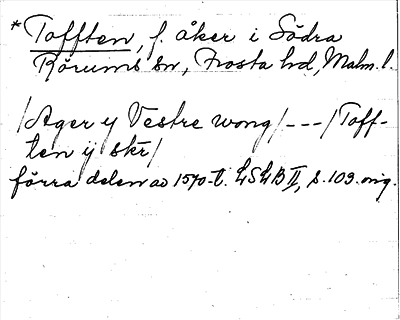 * Tofften, f. åker i Södra
Rörums sn, Frosta hd, Malm. l.
/Ager y Vestre wong/ - - - /Toff-
ten ij skr/
förra delen av 1570-t. LSLB II, s. 103. orig.